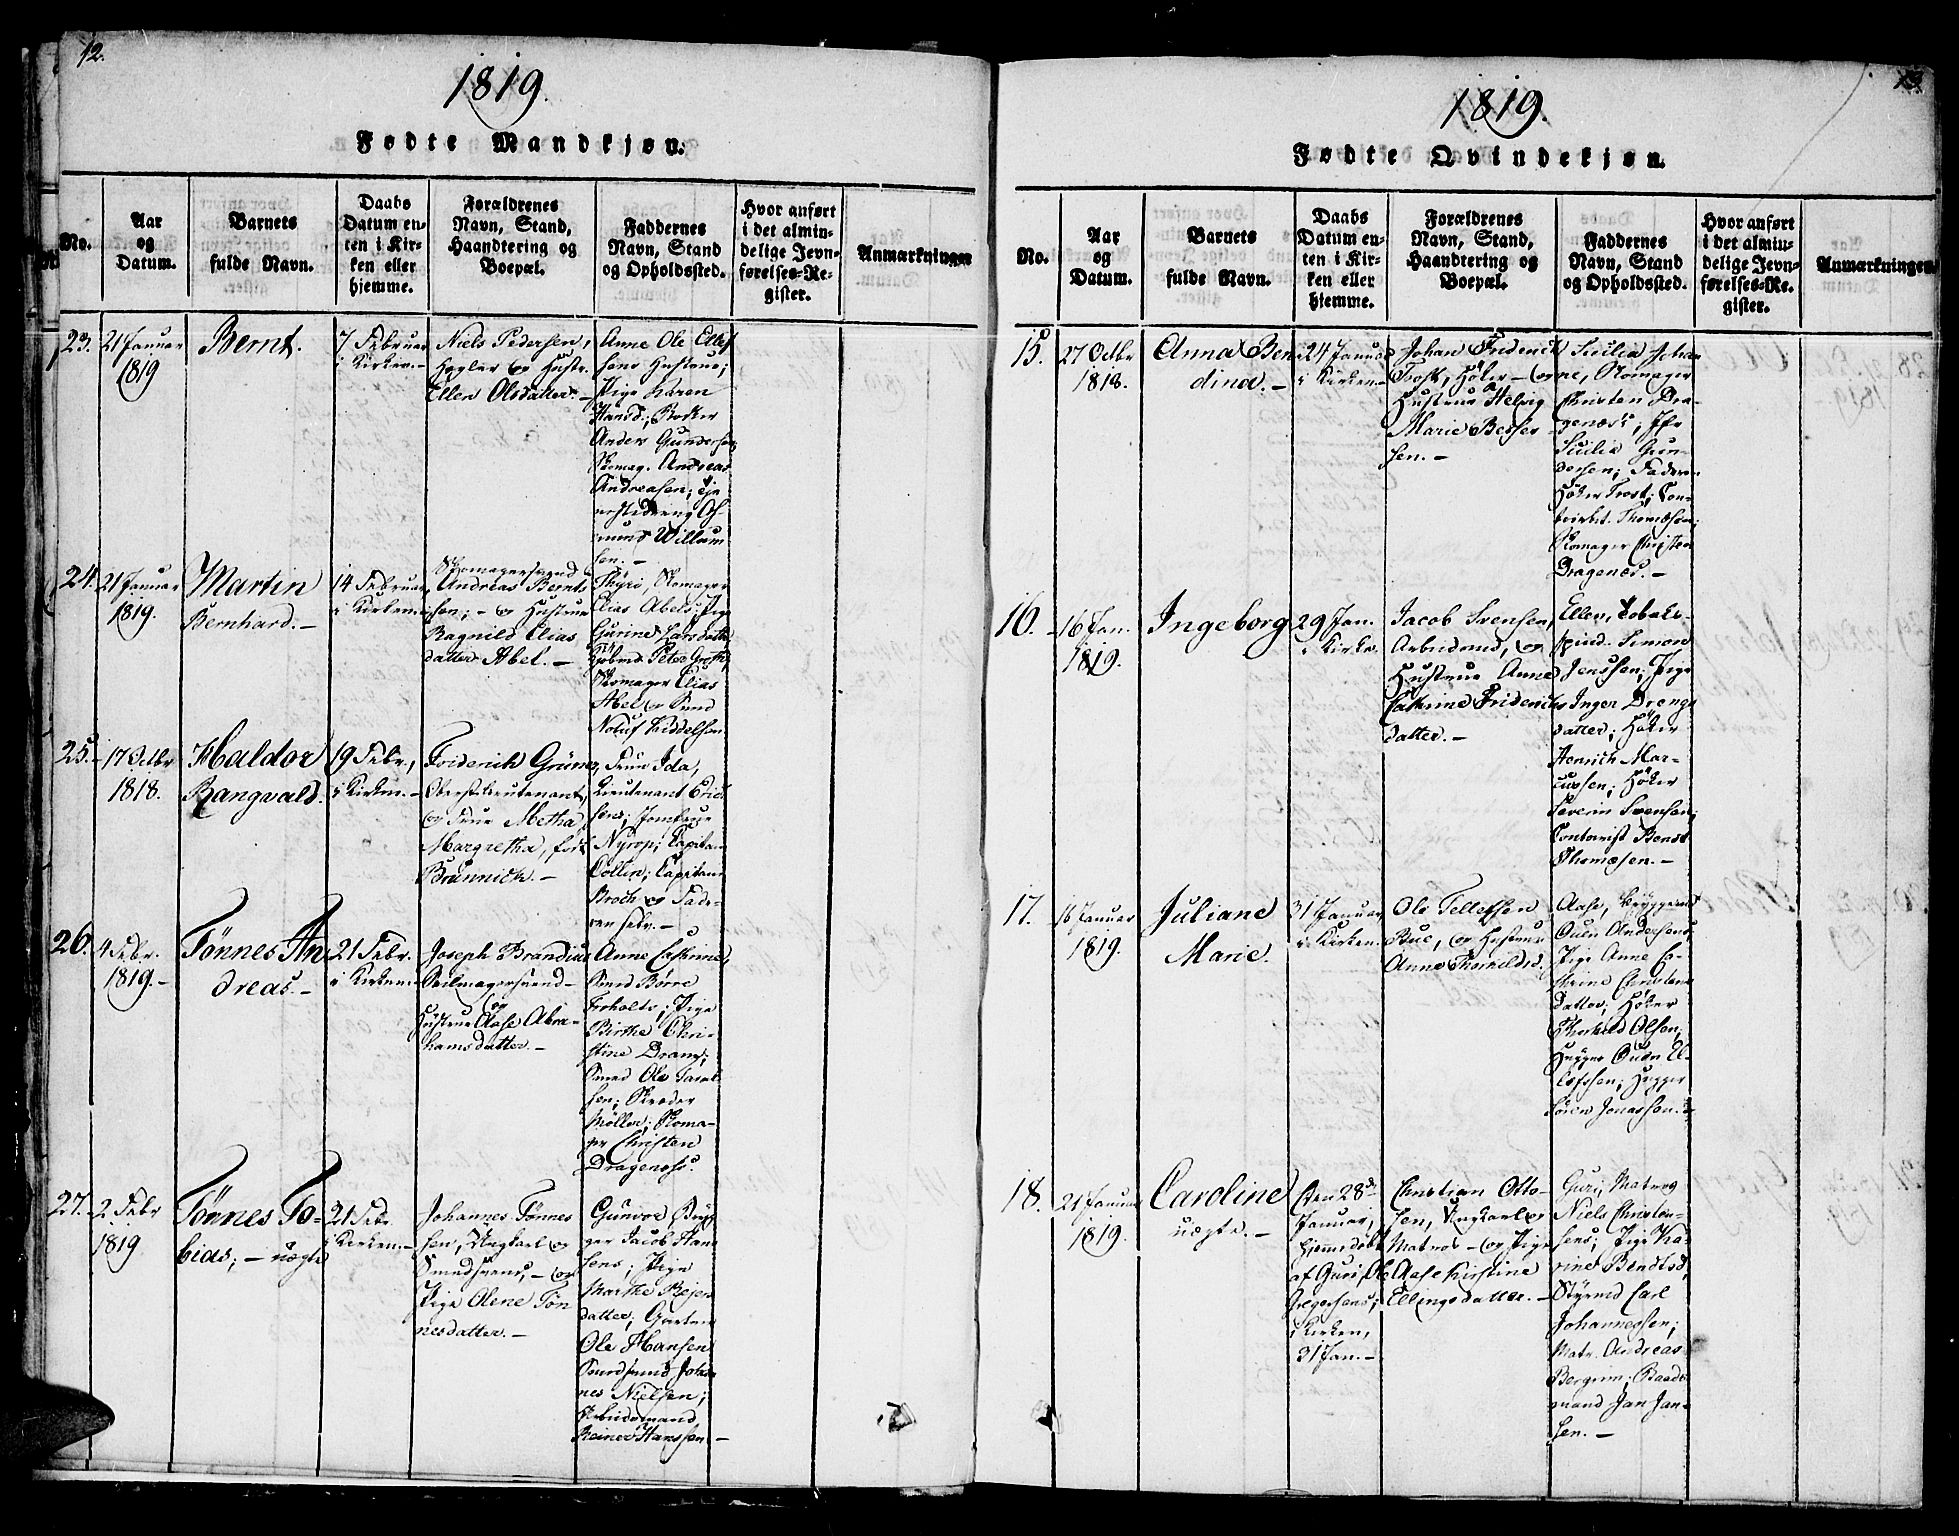 12.
1819.
Fødte Mandkjøn.
No.
Aar
og
Datum.
Barnets
fulde Navn.
Daabs
Datum en-
ten i Kir-
ken eller
hjemme.
Forældrenes
Navn, Stand,
Haandtering og
Boepæl.
Faddernes
Navn, Stand
og Opholdssted.
Hvor anført
i det almin-
delige Jevn-
førelses-Re-
gister.
Anmærkninger
23.
21 Januar
1819
Bernt.
7 Februar
i Kirken.-
Niels Pedersen,
Hegler og Hustr.
Ellen Olsdatter.-
Anne Ole Ellef
sens Hustrue;
Pige Karen
Hansd.;
Anders Gundersen,
Skomag. Andreas
Andreasen;
Willum
sen.-
24.
21 Januar
1819.
Martin
Bernhard.-
14 Februar,
i Kirken
Skomagersvend
Andreas Bernt
sen;- og Hustrue
Ragnild Elias
datter Abel.-
Skomager
Elias Abels; Pige
Gurine Larsdatter
Peter Groth,
Skomager Elias
Abel og Svend
25.
17 Octbr
1818.
Haldor
Rangvald.
19 Febr.,
i Kirken.-
Friderich Grüner,
Oberstlieutenant,
og Frue Metha
Margretha, født
Brünnich.-
Frue Ida,
Lieutenant Erich
sens; Jomfrue
Nyrop; Capitain
Collin; Capitain
Broch og Fade-
ren selv.-
26.
4 Febr.
1819.-
Tönnes An
dreas.-
21 Febr.
i Kirken
Joseph Brandius
Seilmagersvend-
og
Hustrue Aase Abra-
hamsdatter.-
Anne Cathrine,
Smed Börre
Froholts; Pige
Birthe Chri-
stine Drang;
Smed Ole Tarul
sen; Skræder
Möller; Skoma-
ger Christen
Dragenæs.
27.
2 Febr
1819
Tönnes To-
bias;- uægte
21 Febr.
i Kirken.-
Johannes Tönnes
sen, Ungkarl og
Smedsvend;- og
Pige Olene Tön
nesdatter.-
Gunvor, Bryg
ger Jacob Han
sens; Pige
Marthe Rejer
datter; Gartner
Ole Hansen
Smedsvend Johan
nes Nielsen;
Arbeidsmand
Reiner Hanssen.-
13.
1819.
Fødte Qvindekjøn.
No.
Aar
og
Datum.
Barnets
fulde Navn.
Daabs
Datum en-
ten i Kir-
ken eller
hjemme.
Forældrenes
Navn, Stand,
Haandtering og
Boepæl.
Faddernes
Navn, Stand
og Opholdssted.
Hvor anført
i det almin-
delige Jevn-
førelses-Re-
gister.
Anmærkningen.
15.
27 Octbr
1818.
Anna Ben
dina.-
24 Januar
i Kirken.-
Johan Friderich
Trost, Höker- og
Hustrue Helvig
Marie Besser-
sen.-
Sicilia Johan
ne, Skomager
Christen Dra-
genæs's; Jfr
Sicilia Gun-
dersen; Faderen
Höker Trost; Con-
torist. Thomæsen;
Skomager Christen
Dragenæs.-
16.
16 Jan.
1819.
Ingeborg
29 Jan.
i Kirke.
Jacob Svensen,
Arbeidsmd, og
Hustrue Anne
Cathrine Friderichs
datter.-
Ellen, Tobaks-
spind. Simon
Jenssen; Pige
Inger Drengs
datter; Höker
Henrich Mar-
cussen; Höker
Severin Svensen;
Contorist Bendt
Thomæsen.-
17.
16 Januar
1819.
Juliane
Marie
31 Januar
i Kirken.
Ole Tellefsen
Bue, og Hustrue
Anne Thorkildsd.
Aase, Bryggermd
Ouen Andersens;
Pige Anne Ca-
thrine Christens
datter; Höker
Thorkild Olsen;
Hugger Ouen El-
lefssen; Hugger
Sören Jonassen.-
18.
21 Januar
1819.
Caroline
uægte.-
Den 28de
Januar,
hjemmedöbt
af Guri Ole
Gregersens;
i Kirken,
31 Jan.-
Christian Otto-
sen, Ungkarl og
Matros- og Pige
Aase Kirstine
Ellingsdatter.-
Guri, Matros
Niels Christen-
sens; Pige Ka-
rine Bendtsd.
Styrmd Carl
Johannessen;
Matr. Andreas
Bergman; Baads
mand Jan Jan-
sen.-